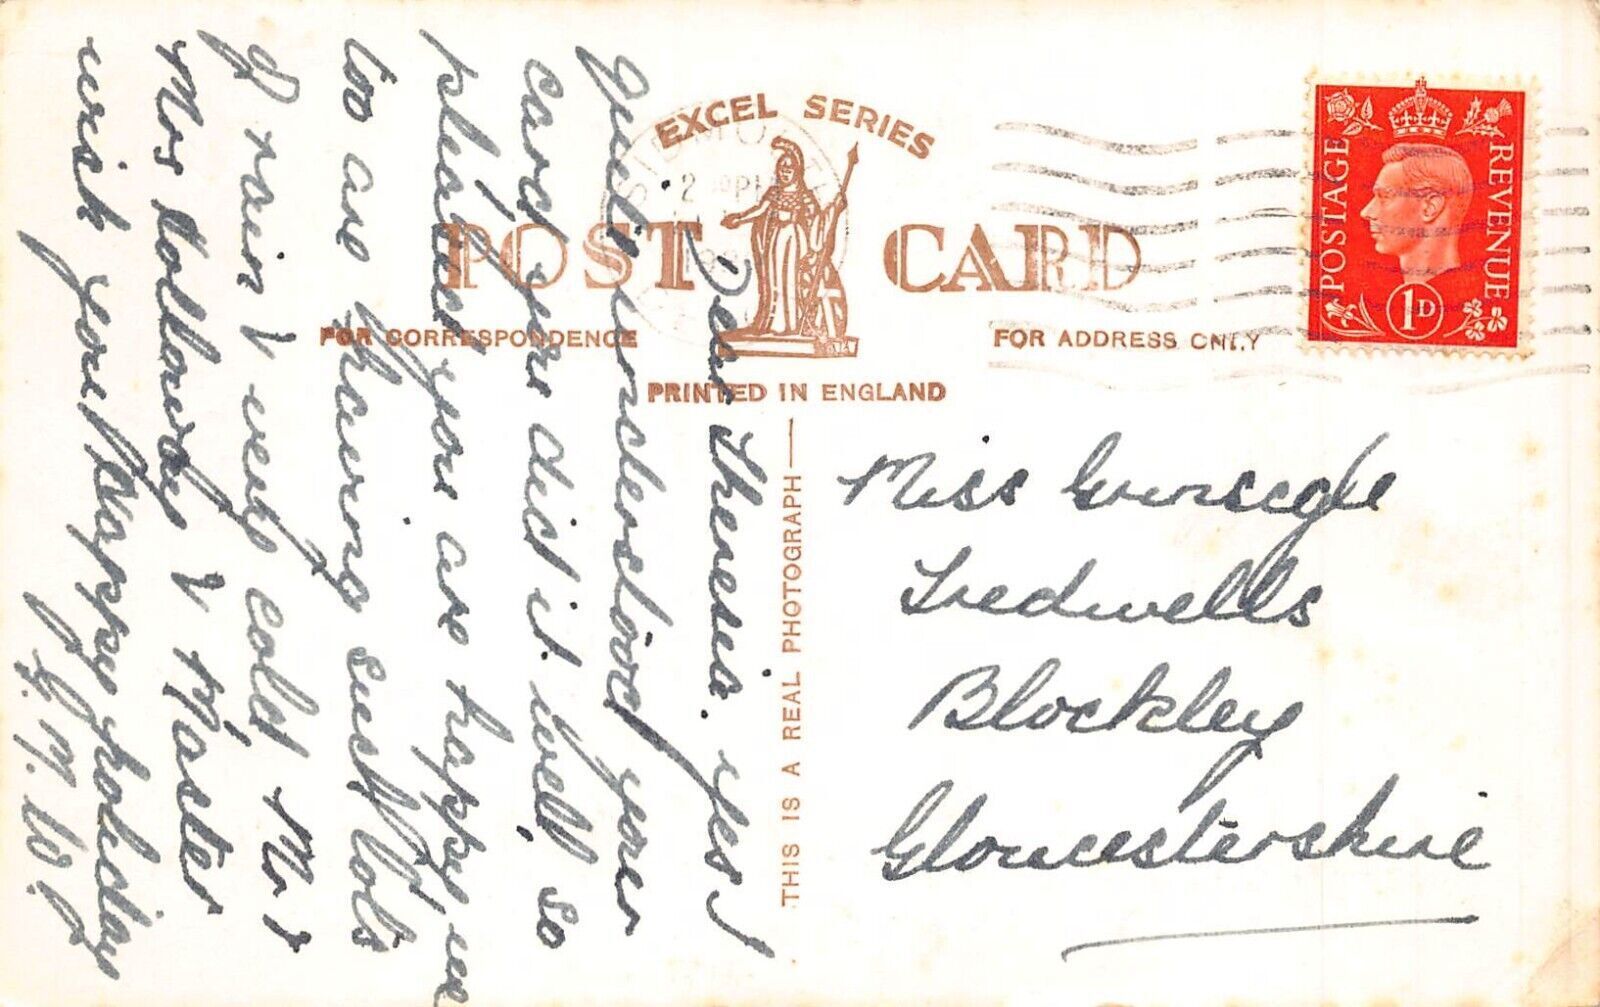 EXCEL SERIES
POST CARD
FOR CORRESPONDENCE
FOR ADDRESS ONLY
PRINTED IN ENGLAND
THIS IS A REAL PHOTOGRAPH
POSTAGE REVENUE
1D
Dear Theresia. yes I
quite understood your
card, you did it well, so
pleased you are happy, we
too are having such lots
of rain & very cold Mr &
Mrs Holloway & Master
wish you Happy holiday
Miss
Tredwells
Blockley
Gloucestershire